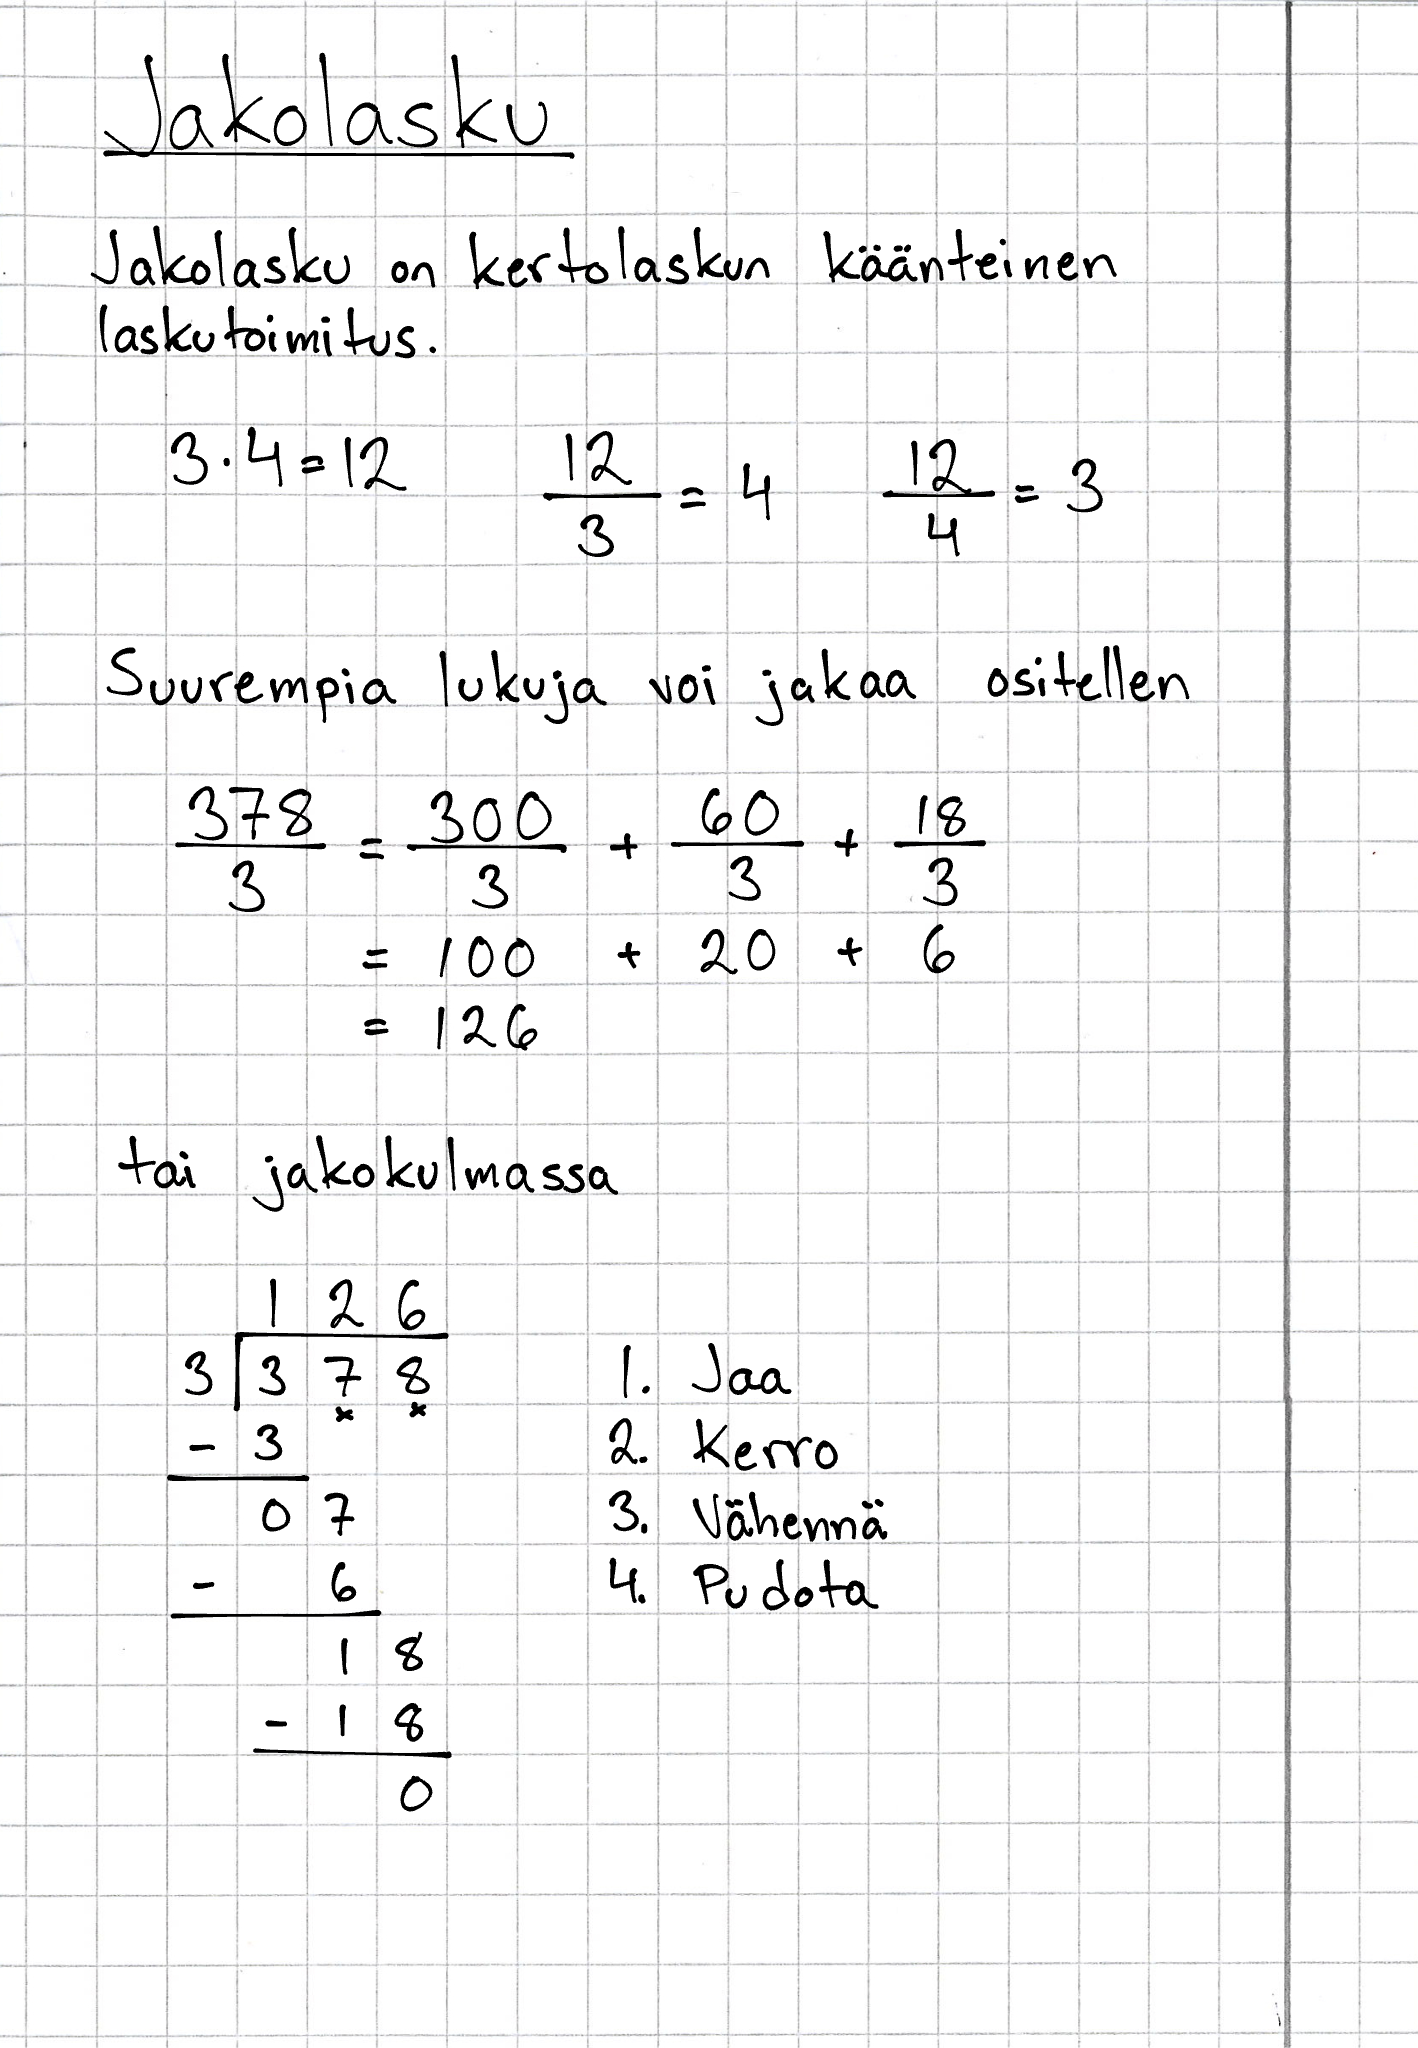 Jakolasku
Jakolasku on kertolaskun käänteinen
laskutoimitus.
3·4=12 12/3 = 4 12/4 = 3
Suurempia lukuja voi jakaa ositellen
378/3 = 300/3 + 60/3 + 18/3
= 100 + 20 + 6
= 126
tai jakokulmassa
1 2 6
3 3 7 8
x x
- 3
0 7
- 6
1 8
- 1 8
0
1. Jaa
2. Kerro
3. Vähennä
4. Pudota